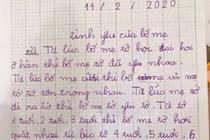 11 / 2 / 2020
tình yêu của bố mẹ
Từ lúc bố mẹ tớ học đại học
ở hàn thì bố mẹ tớ đã yêu nhau.
Từ lúc bố mẹ cưới thì bố và mẹ
tớ tôn trọng nhau. Từ lúc mẹ tớ
đẻ ra tớ thì bố mẹ tớ yêu tớ. Từ tớ
1 tuổi, 2 tuổi, 3 tuổi thì bố mẹ tớ hơi
quát nhưng từ lúc tớ 4 tuổi, 5 tuổi, 6